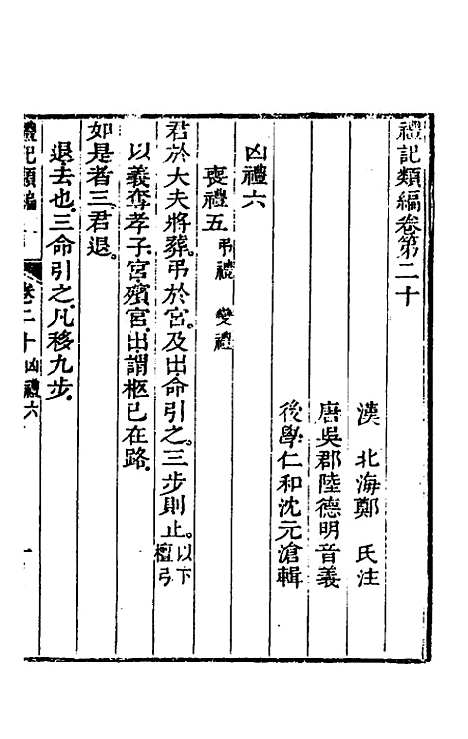 禮記類編卷第二十
漢北海鄭氏注
唐吳郡陸德明音義
後學仁和沈元滄輯
凶禮六
喪禮五 弔禮 變禮
君於大夫將葬。弔於宮。及出命引之。三步則止。以下檀弓
以義奪孝子。宮。殯宮。出謂柩已在路。
如是者三。君退。
退去也。三命引之。凡移九步。
禮記類編 卷二十 凶禮六 一